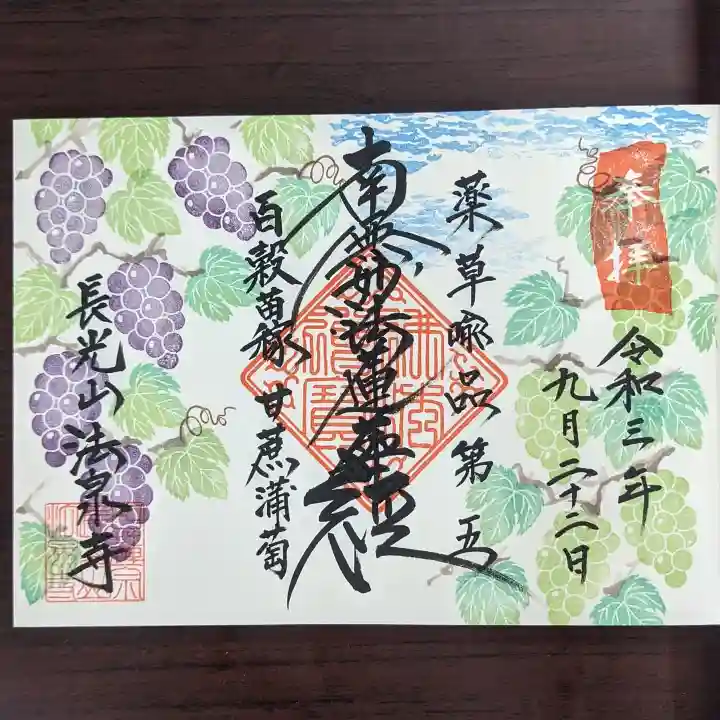 参拝
令和三年
九月二十二日
薬草喩品第五
南無妙法蓮華経
百穀苗稼甘蔗蒲萄
長光山法泉寺